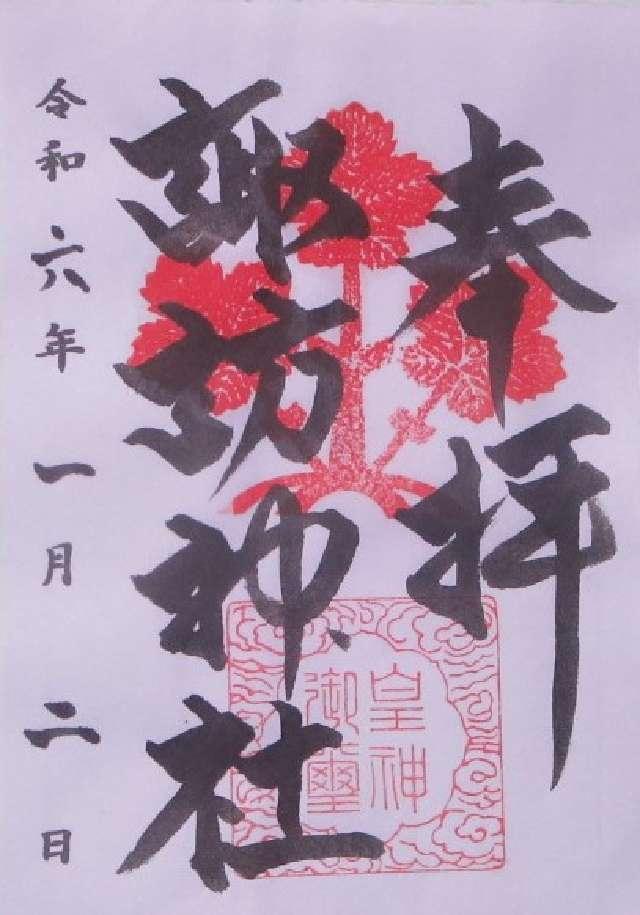 奉拝
諏訪神社
皇神
御璽
令和六年一月二日